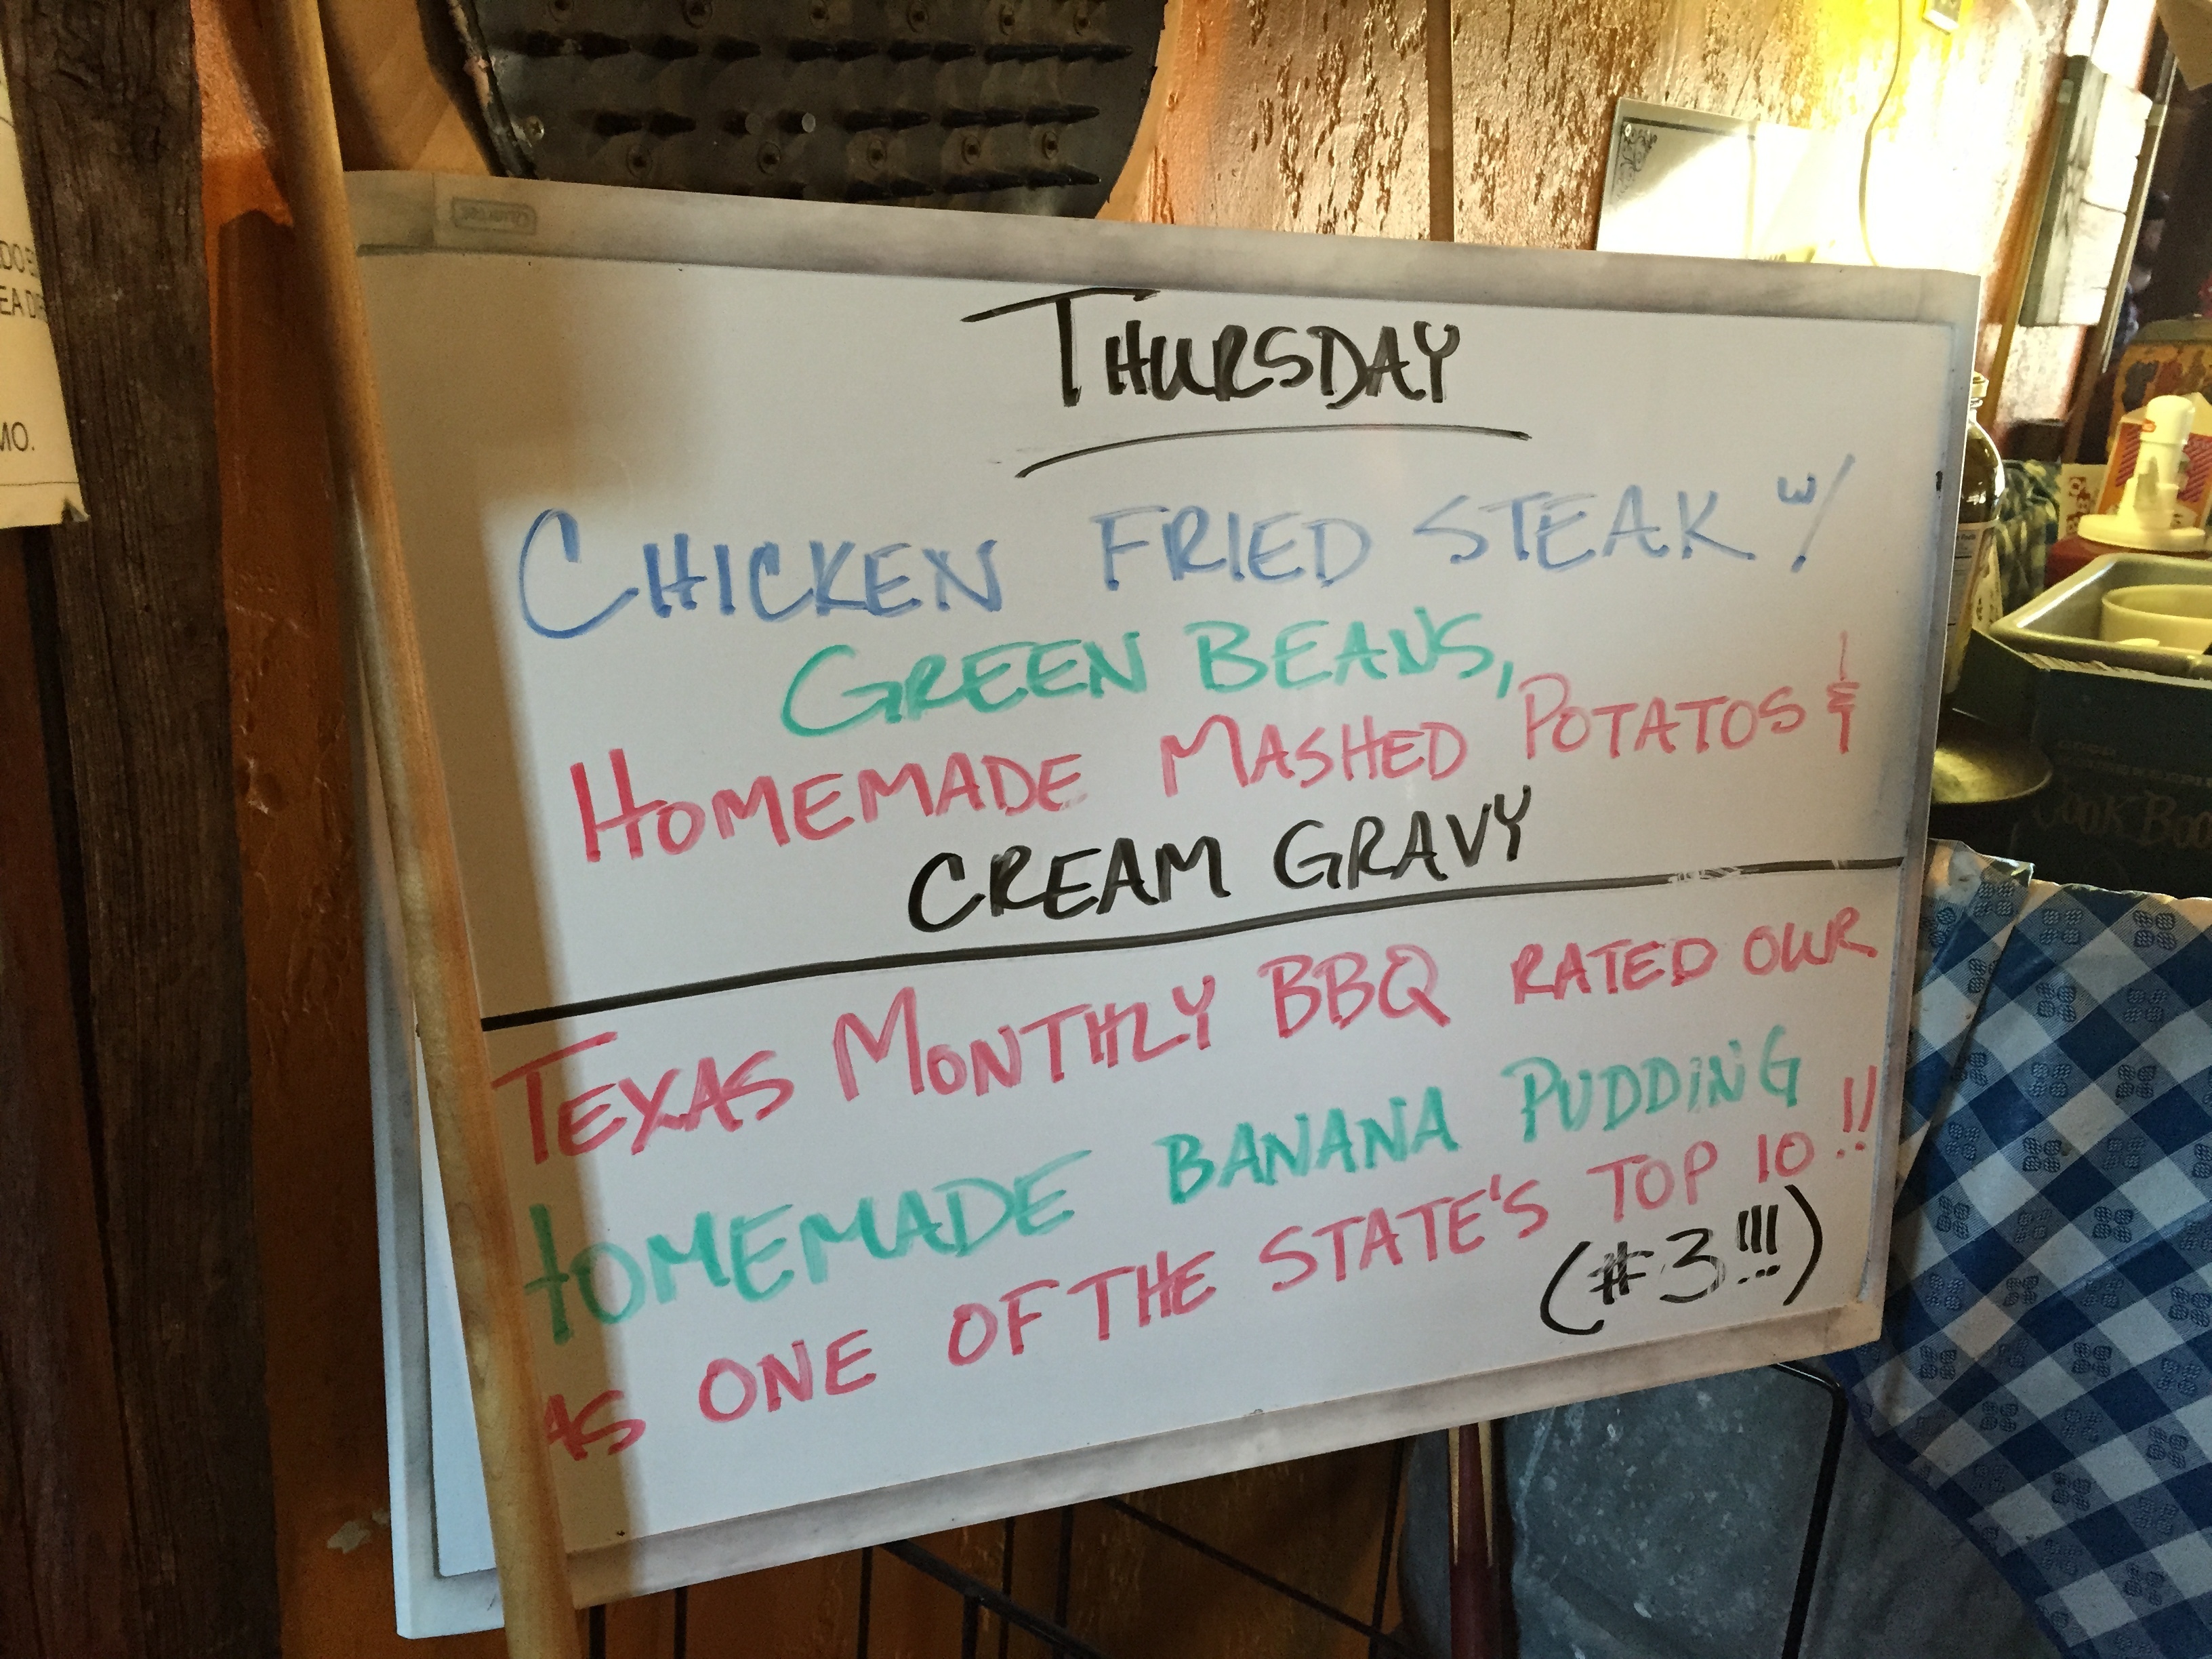 THURSDAY
CHICKEN FRIED STEAK w/
GREEN BEANS,
HOMEMADE MASHED POTATOS &
CREAM GRAVY
TEXAS MONTHLY BBQ RATED OUR
HOMEMADE BANANA PUDDING
AS ONE OF THE STATE'S TOP 10!!
(#3!!!)
MO.